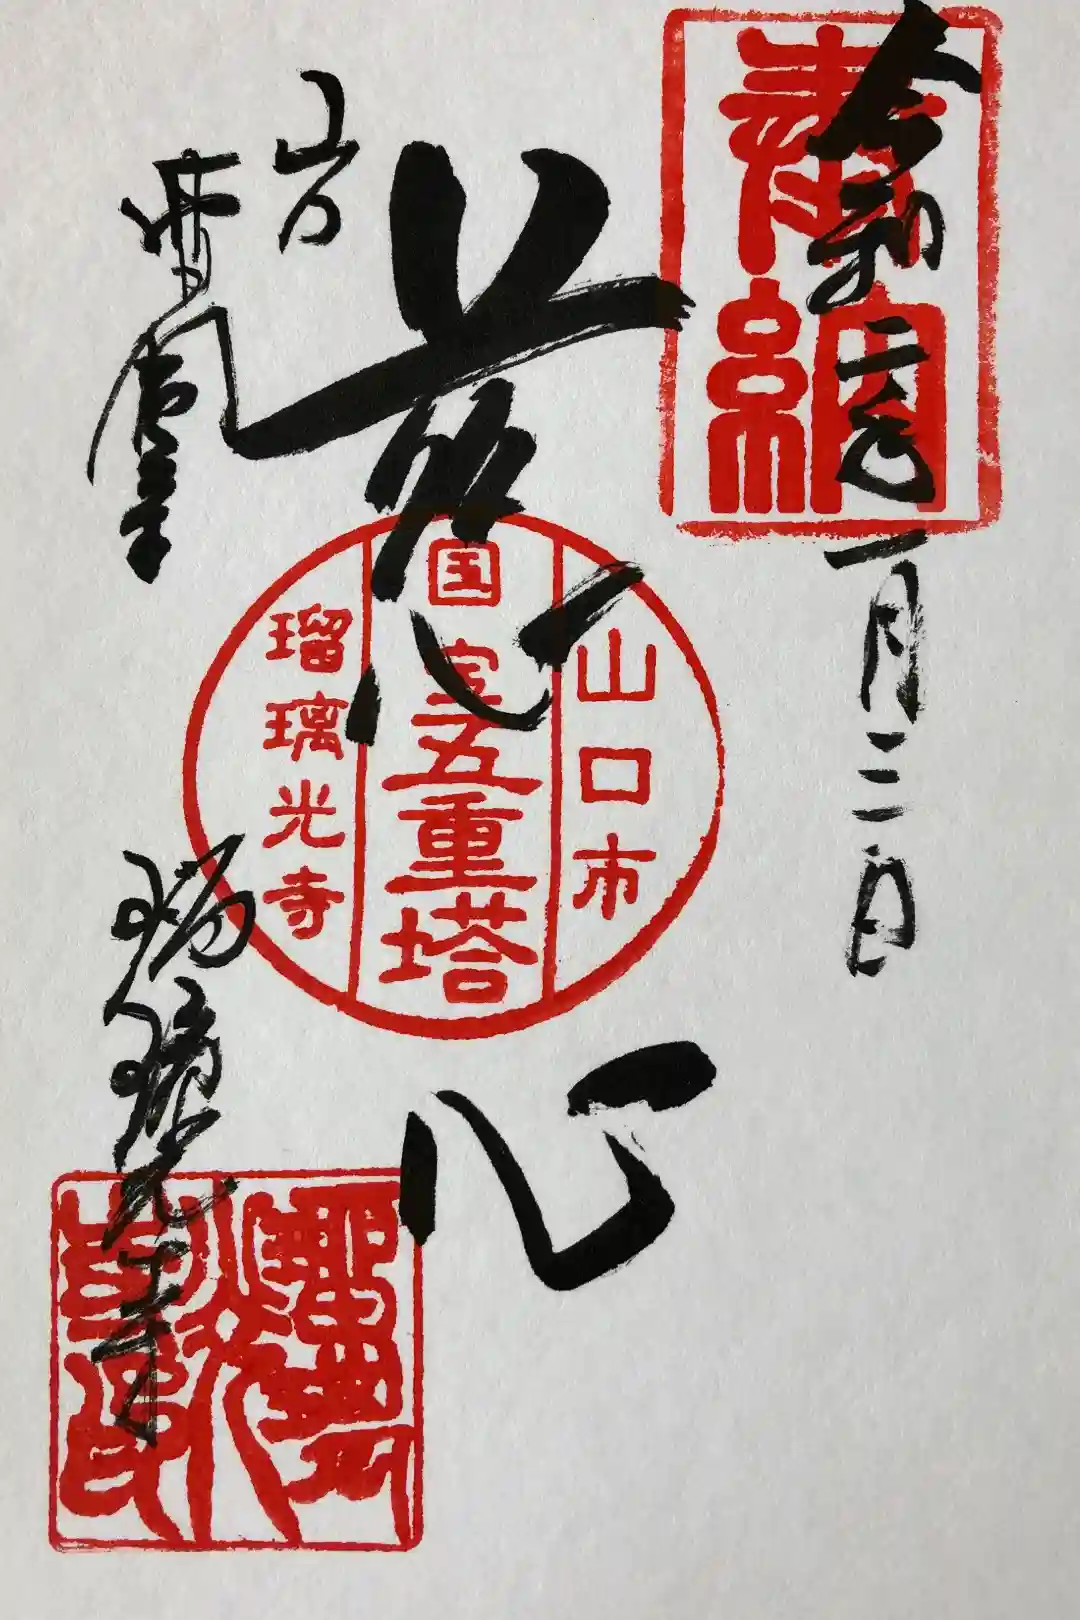 奉納
令和二年一月三日
慈心
山口市
国宝五重塔
瑠璃光寺
瑠璃光寺